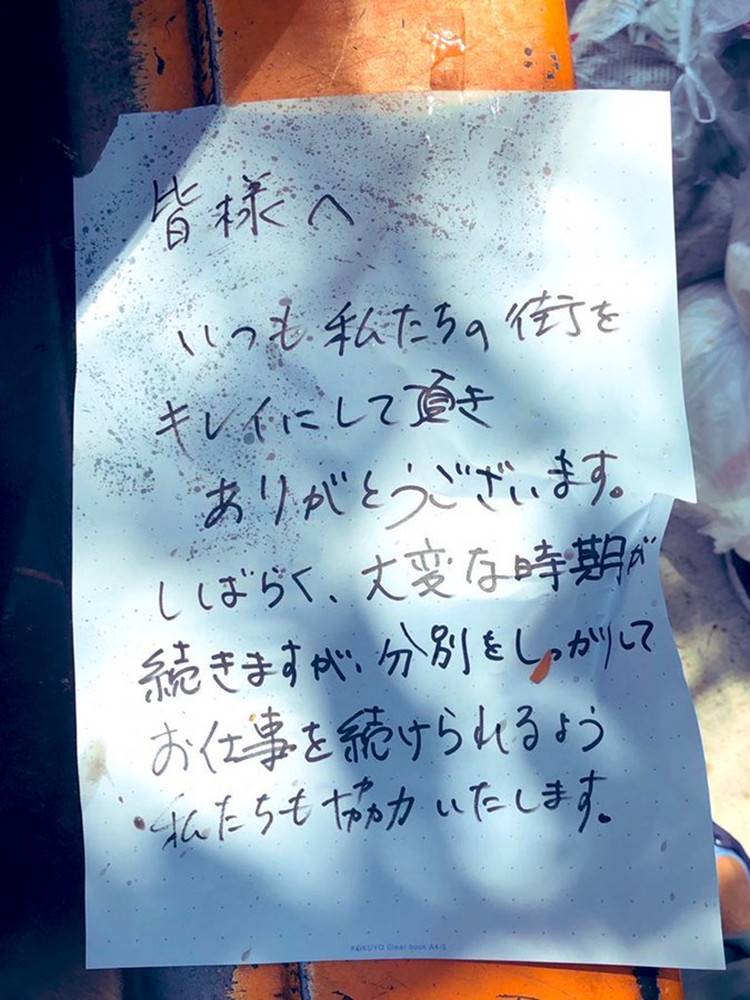 皆様へ
いつも私たちの街を
キレイにして頂き
ありがとうございます。
しばらく、大変な時期が
続きますが、分別をしっかりして
お仕事を続けられるよう
私たちも協力いたします。
KOKUYO Clear book A4-S